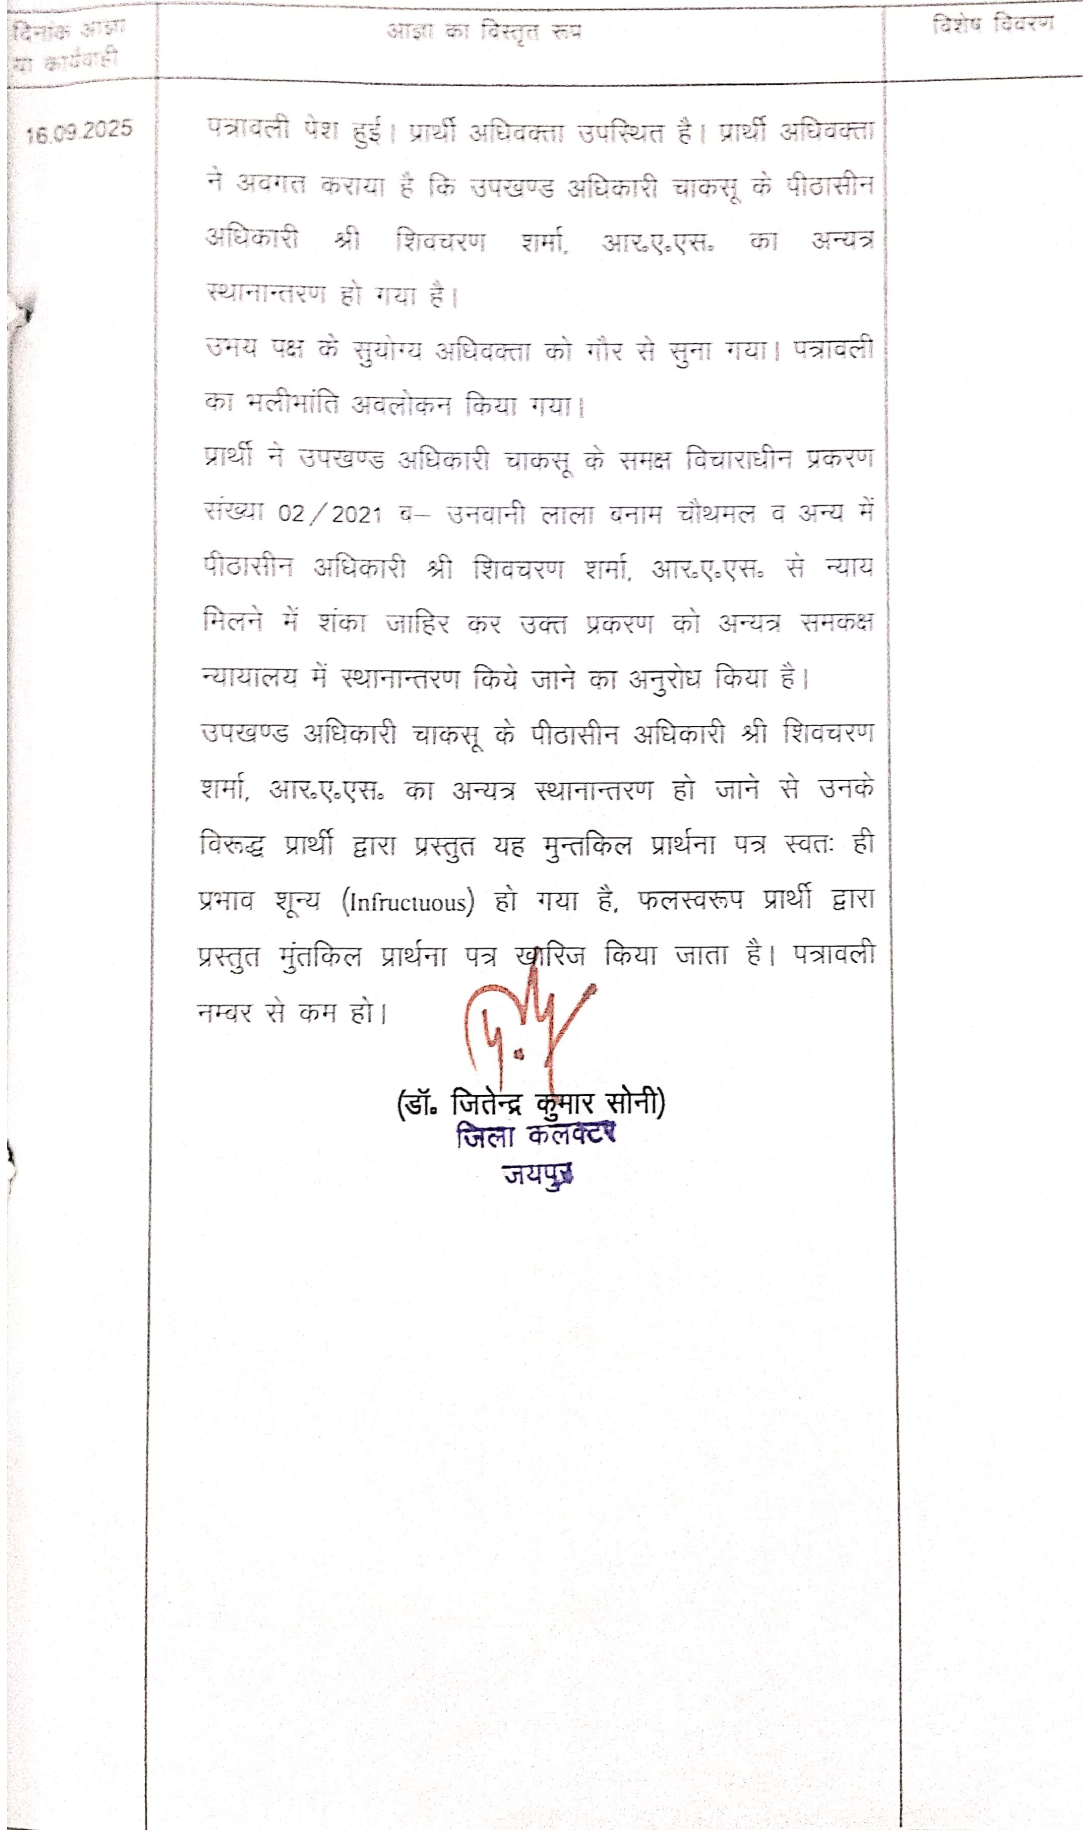 दिनांक आज्ञा
या कार्यवाही
आज्ञा का विस्तृत रूप
विशेष विवरण
16.09.2025
पत्रावली पेश हुई। प्रार्थी अधिवक्ता उपस्थित है। प्रार्थी अधिवक्ता
ने अवगत कराया है कि उपखण्ड अधिकारी चाकसू के पीठासीन
अधिकारी श्री शिवचरण शर्मा, आर.ए.एस. का अन्यत्र
स्थानान्तरण हो गया है।
उभय पक्ष के सुयोग्य अधिवक्ता को गौर से सुना गया। पत्रावली
का भलीभांति अवलोकन किया गया।
प्रार्थी ने उपखण्ड अधिकारी चाकसू के समक्ष विचाराधीन प्रकरण
संख्या 02/2021 व– उनवानी लाला बनाम चौथमल व अन्य में
पीठासीन अधिकारी श्री शिवचरण शर्मा, आर.ए.एस. से न्याय
मिलने में शंका जाहिर कर उक्त प्रकरण को अन्यत्र समकक्ष
न्यायालय में स्थानान्तरण किये जाने का अनुरोध किया है।
उपखण्ड अधिकारी चाकसू के पीठासीन अधिकारी श्री शिवचरण
शर्मा, आर.ए.एस. का अन्यत्र स्थानान्तरण हो जाने से उनके
विरूद्ध प्रार्थी द्वारा प्रस्तुत यह मुन्तकिल प्रार्थना पत्र स्वतः ही
प्रभाव शून्य (Infructuous) हो गया है, फलस्वरूप प्रार्थी द्वारा
प्रस्तुत मुंतकिल प्रार्थना पत्र खारिज किया जाता है। पत्रावली
नम्बर से कम हो।
(डॉ. जितेन्द्र कुमार सोनी)
जिला कलक्टर
जयपुर